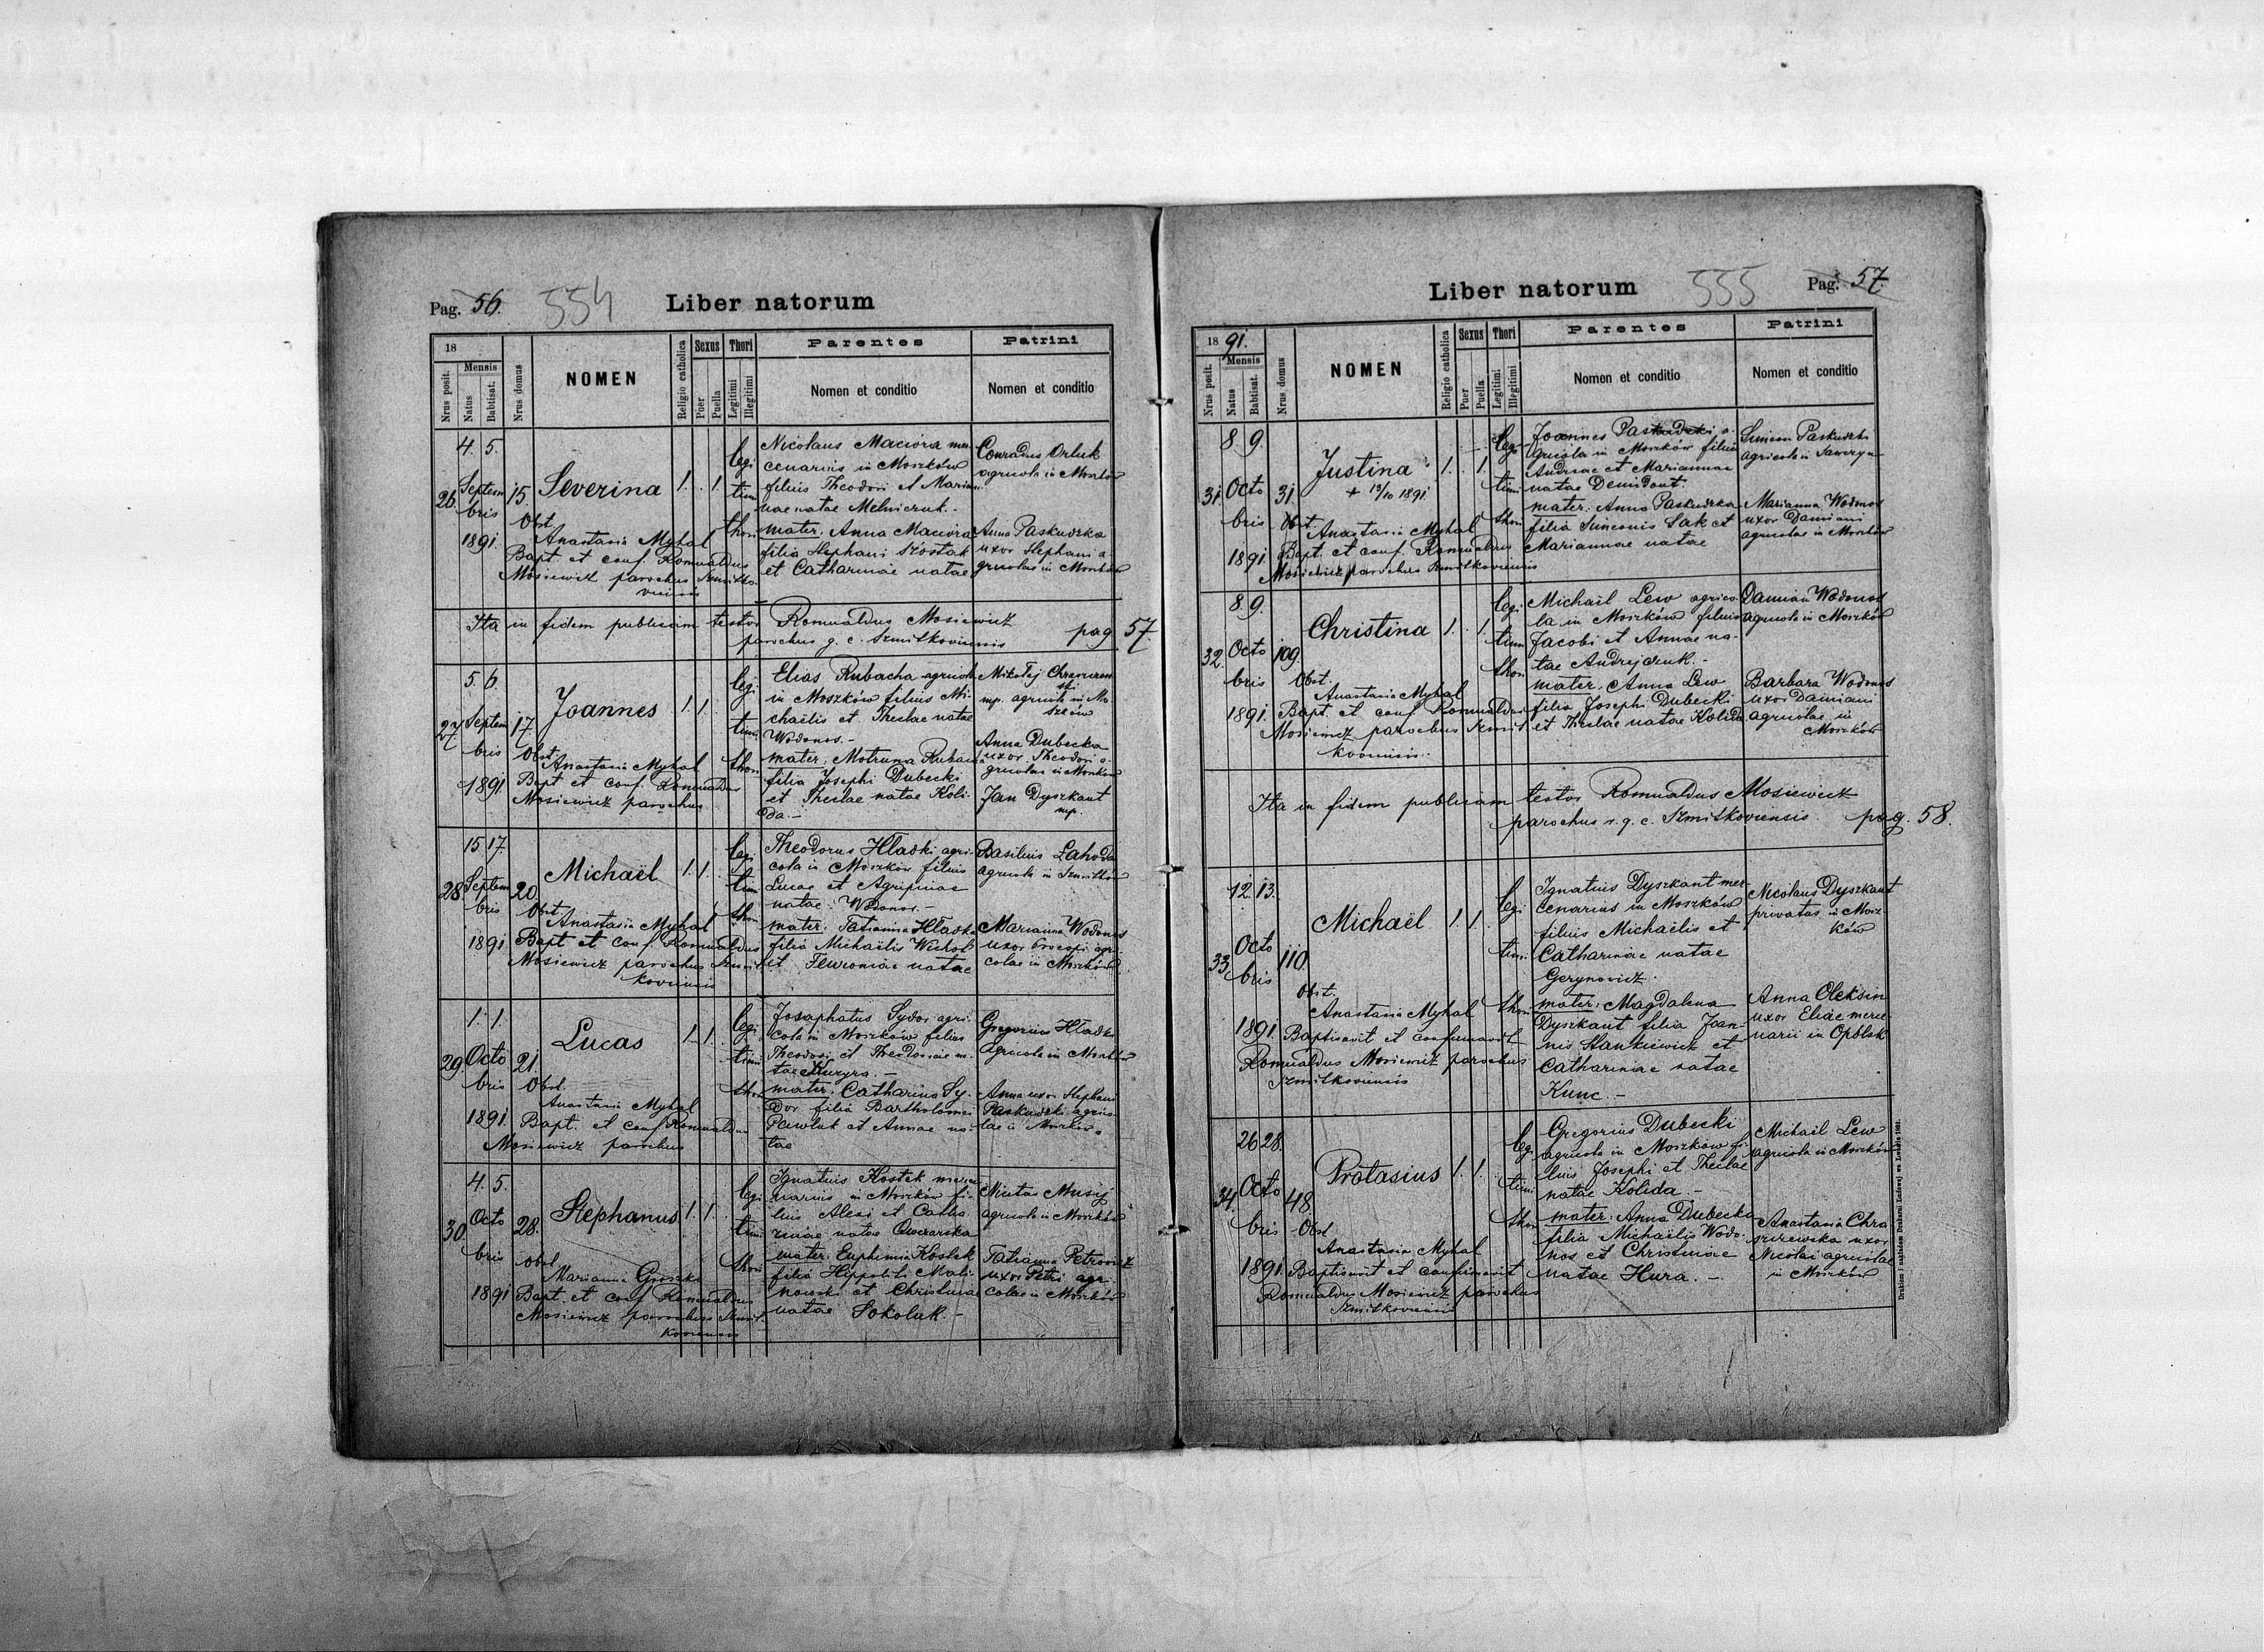 Pag. 56. 554 Liber natorum
18
Nrus posit.
Mensis
Natus
Babtisat.
Nrus domus
NOMEN
Religio catholica
Sexus
Puer
Puella
Thori
Legitimi
Illegitimi
Parentes
Nomen et conditio
Patrini
Nomen et conditio
26.
4. 5.
Septem
bris
1891.
15.
Severina
1. 1.
legi
timi
thori
Obst.
Anastasia Myhal
Bapt. et conf. Romualdus
Mosiewicz parochus Szmitko
viensis
Nicolaus Maciora mer-
cenarius in Moszków
filius Theodori et Marian-
nae natae Melniczuk.-
mater. Anna Maciora
filia Stephani Szostak
et Catharinae natae
Conradus Orluk
agricola in Moszków
Anna Paskudzka
uxor Stephani a-
gricolae in Moszków
Ita in fidem publicam testor Romualdus Mosiewicz
parochus g. c. Szmitkoviensis pag 57
27
5. 6.
Septem
bris
1891.
17.
Joannes
1. 1.
legi
timi
thori
Obst.
Anastasia Myhal
Bapt. et conf. Romualdus
Mosiewicz parochus
Elias Rubacha agricola
in Moszków filius Mi-
chaëlis et Theclae natae
Wodonos.-
mater. Motruna Rubach
filia Josephi Dubecki
et Theclae natae Koli-
da.-
Mikołaj
mp. agricola in Mo
szków
Anna Dubecka
uxor Theodori a-
gricolae in Moszków
Jan Dyszkant
mp.
28.
15 17.
Septem
bris
1891
20.
Michaël
1. 1.
legi
timi
thori
Obst.
Anastasia Myhal
Bapt. et conf. Romualdus
Mosiewicz parochus Szmit-
koviensis
Theodorus Hladki agri-
cola in Moszków filius
Lucae et Agripinae
natae Wodonos.-
mater. Tatianna Hladka
filia Michaëlis Wichot
et Fewroniae natae
Basilius Lahoda
agricola in Szmitków
Marianna Wodonos
uxor Procopi agri-
colae in Moszków
29.
1. 1.
Octo
bris
1891.
21.
Lucas
1. 1.
legi
timi
thori
Obst.
Anastasia Myhal
Bapt. et conf. Romualdus
Mosiewicz parochus
Josaphatus Sydor agri-
cola in Moszków filius
Theodori et Theodosiae na-
tae
mater. Catharina Sy-
dor filia Bartholomei
Pawluk et Annae na-
tae
Gregorius Hladki
agricola in Moszków
Anna uxor Stephani
Paskudzki agrico-
lae in Moszków
30.
4. 5.
Octo
bris
1891
28.
Stephanus
1. 1.
legi
timi
thori
Obst.
Marianna Groszka
Bapt. et conf. Romualdus
Mosiewicz parochus Szmit-
koviensis
Ignatius Kostek merce
narius in Moszków fi-
lius Alexi et Catha
rinae natae Owczarska
mater. Euphemia Kostek
filia Hippoliti Mali-
nowski et Christinae
natae Sokoluk.-
Nicetas Musij
agricola in Moszków
Tatianna Petrowicz
uxor Petri agri-
colae in Moszków
Liber natorum 555 Pag. 57.
18 91.
Nrus posit.
Mensis
Natus
Babtisat.
Nrus domus
NOMEN
Religio catholica
Sexus
Puer
Puella
Thori
Legitimi
Illegitimi
Parentes
Nomen et conditio
Patrini
Nomen et conditio
31.
8. 9.
Octo
bris
1891.
31
Justina
+ 13/10 1891.
1. 1.
legi
timi
thori
Obst.
Anastasia Myhal
Bapt. et conf. Romualdus
Mosiewicz parochus Szmitkoviensis
Joannes Paskudzki a-
gricola in Moszków filius
Andreae et Mariannae
natae Demidont.
mater. Anna Paskudzka
filia Simeonis Sak et
Mariannae natae
Simeon Paskudzki
agricola in
Marianna Wodonos
uxor Damiani
agricolae in Moszków
32.
8. 9.
Octo
bris
1891.
109.
Christina
1. 1.
legi
timi
thori
Obst.
Anastasia Myhal
Bapt. et conf. Romualdus
Mosiewicz parochus Szmit-
koviensis.-
Michaël Lew agrico
la in Moszków filius
Jacobi et Annae na-
tae Andrejczuk.-
mater. Anna Lew
filia Josephi Dubecki
et Theclae natae Kolida
Damian Wodonos
agricola in Moszków
Barbara Wodonos
uxor Damiani
agricolae in
Moszków
Ita in fidem publicam testor Romualdus Mosiewicz
parochus r. g. c. Szmitkoviensis. pag. 58.
33.
12. 13.
Octo
bris
1891.
110.
Michaël
1. 1.
legi
timi
thori
Obst.
Anastasia Myhal
Baptisavit et confirmavit
Romualdus Mosiewicz parochus
Szmitkoviensis
Ignatius Dyszkant mer-
cenarius in Moszków
filius Michaëlis et
Catharinae natae
Gerynowicz.
mater. Magdalena
Dyszkant filia Joan-
nis Stankiewicz et
Catharinae natae
Kunc.-
Nicolaus Dyszkant
privatus in Mosz
ków
Anna Oleksin
uxor Eliae merce
narii in Opolsk
34.
26 28.
Octo
bris
1891.
48.
Protasius
1. 1.
legi
timi
thori
Obst.
Anastasia Myhal
Baptisavit et confirmavit
Romualdus Mosiewicz parochus
Szmitkoviensis
Gregorius Dubecki
agricola in Moszków fi-
lius Josephi et Theclae
natae Kolida -
mater. Anna Dubecka
filia Michaëlis Wodo-
nos et Christinae
natae Hura.-
Michaël Lew
agricola in Moszków
Anastasia Chra
uxor
Nicolai agricolae
in Moszków
Drukiem i nakładem Drukarni Ludowej we Lwowie 1891.